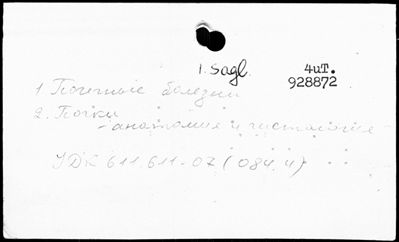 1. Sagl.
4uT.
928872
1 Почечные болезни
2. Почки
- анатомия и гистология
УДК 611.611-02 (084.4)